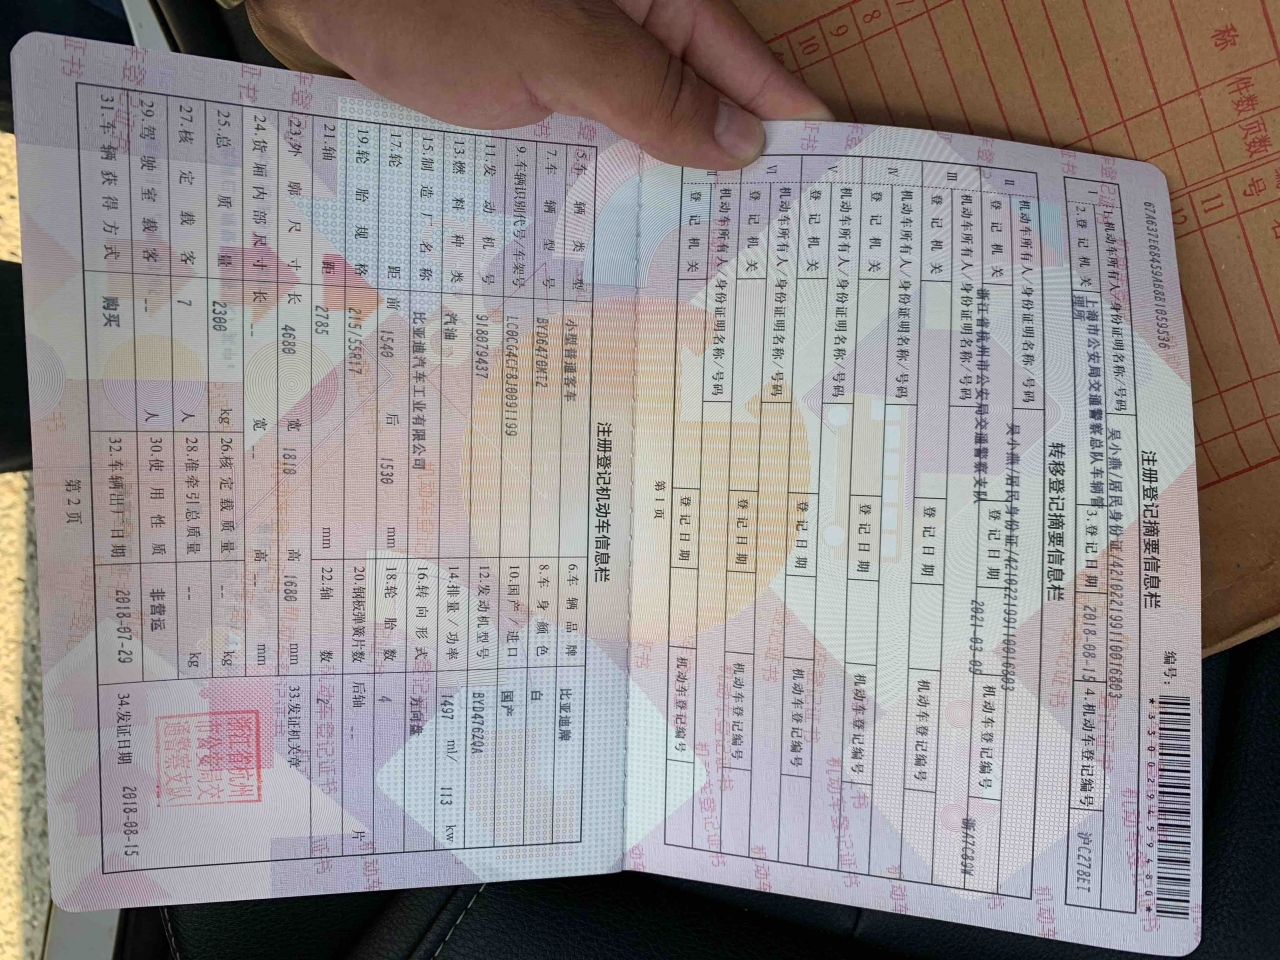 67A637E68459AB8B1059536
注册登记摘要信息栏
编号:
*330029459480*
I
1.机动车所有人/身份证明名称/号码 吴小燕/居民身份证/421022199110016803
2.登记机关 上海市公安局交通警察总队车辆管理所 3.登记日期 2018-08-15 4.机动车登记编号 沪C278ET
转移登记摘要信息栏
II 机动车所有人/身份证明名称/号码 吴小燕/居民身份证/421022199110016803
登记机关 浙江省杭州市公安局交通警察支队 登记日期 2021-03-09 机动车登记编号
III 机动车所有人/身份证明名称/号码
登记机关 登记日期 机动车登记编号
IV 机动车所有人/身份证明名称/号码
登记机关 登记日期 机动车登记编号
V 机动车所有人/身份证明名称/号码
登记机关 登记日期 机动车登记编号
VI 机动车所有人/身份证明名称/号码
登记机关 登记日期 机动车登记编号
机动车所有人/身份证明名称/号码
登记机关 登记日期 机动车登记编号
第1页
注册登记机动车信息栏
5.车辆类型 小型普通客车 6.车辆品牌 比亚迪牌
7.车辆型号 8.车身颜色 白
9.车辆识别代号/车架号 LC0CG4CF8J0091199 10.国产/进口 国产
11.发动机号 918079437 12.发动机型号 BYD476ZQA
13.燃料种类 汽油 14.排量/功率 1497 ml/ 113 kw
15.制造厂名称 比亚迪汽车工业有限公司 16.转向形式 方向盘
17.轮距 前 1540 后 1530 mm 18.轮胎数 4
19.轮胎规格 215/55R17 20.钢板弹簧片数 后轴 -- 片
21.轴距 2785 mm 22.轴数 2
23.外廓尺寸 长 4680 宽 1810 高 1680 mm 33.发证机关章
24.货厢内部尺寸 长 -- 宽 -- 高 -- mm
25.总质量 2300 kg 26.核定载质量 -- kg
27.核定载客 7 人 28.准牵引总质量 -- kg
29.驾驶室载客 -- 人 30.使用性质 非营运
31.车辆获得方式 购买 32.车辆出厂日期 2018-07-29 34.发证日期 2018-08-15
第2页
称
件数
页数
号
8
9
10
11
12